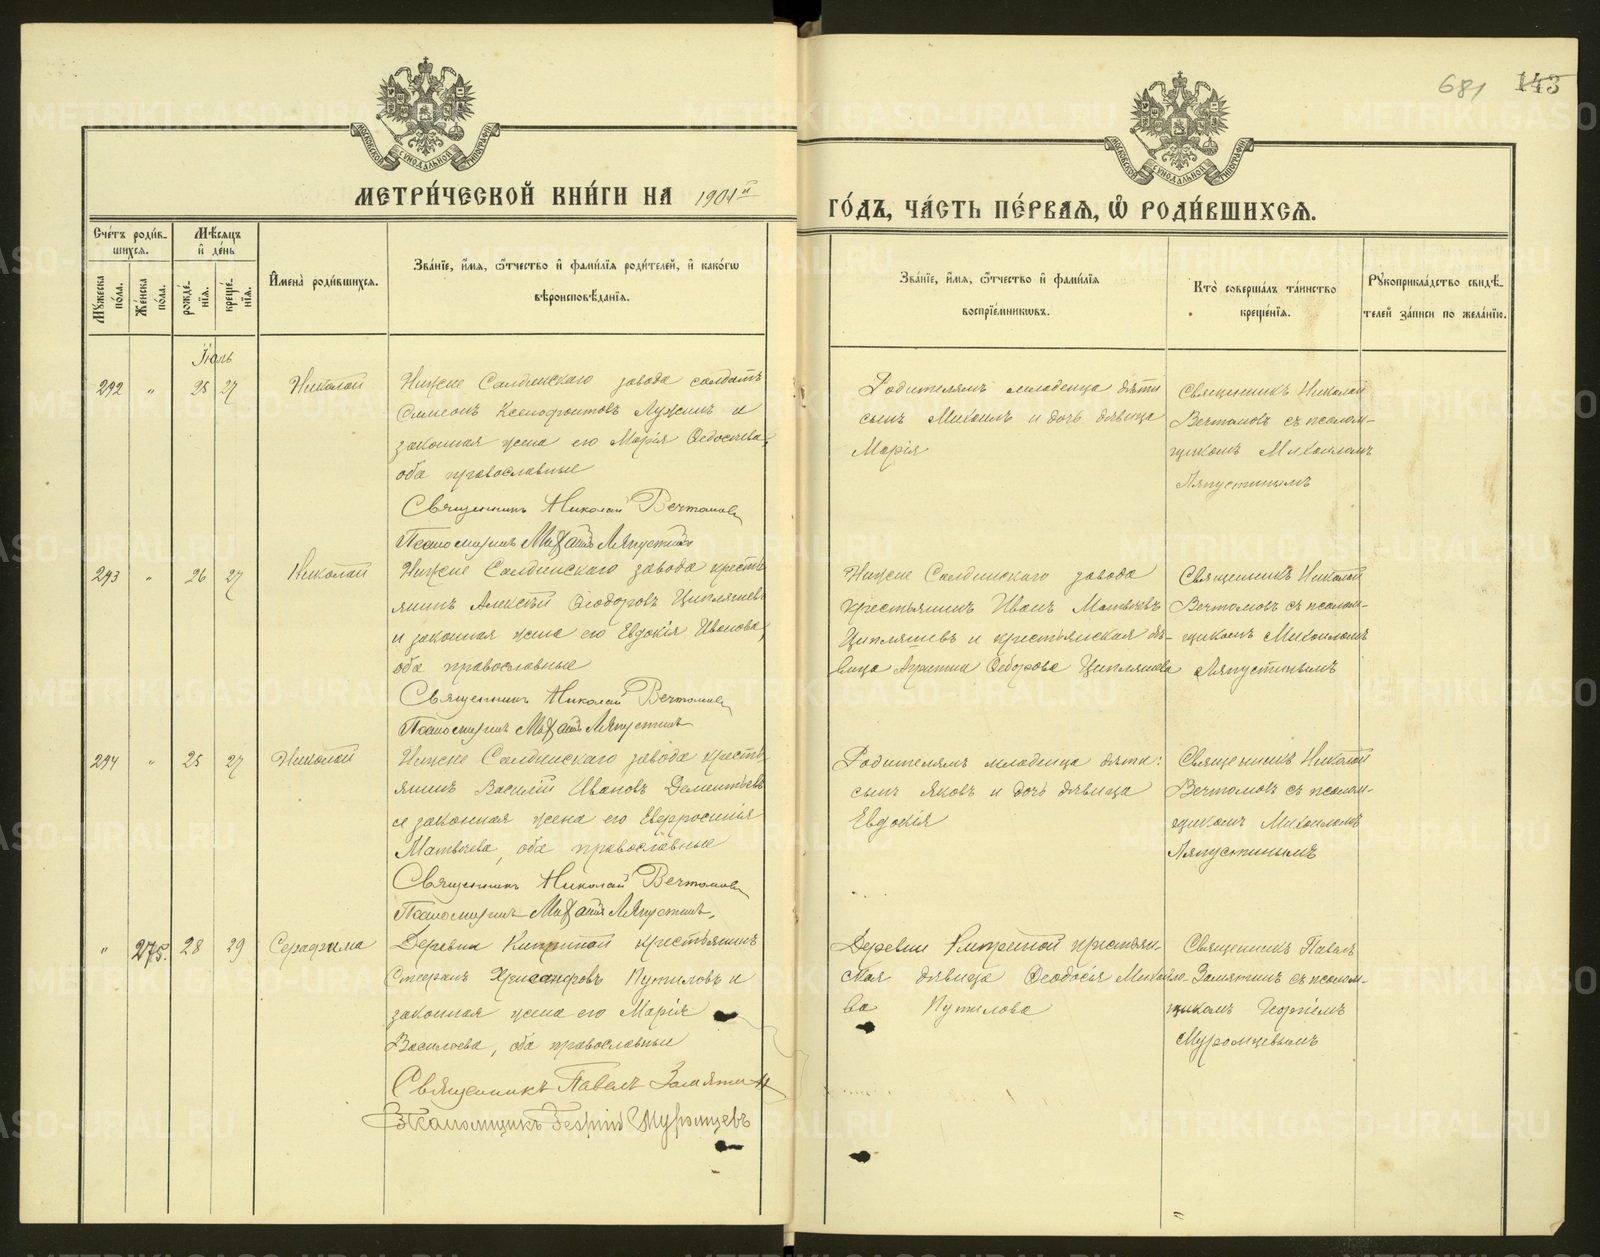 681 143
МОСКОВСКОЙ СѴНОДАЛЬНОЙ ТИПОГРАФІИ
МОСКОВСКОЙ СѴНОДАЛЬНОЙ ТИПОГРАФІИ
МЕТРИ́ЧЕСКОЙ КНИ́ГИ НА 1901й
ГО́ДЪ, ЧА́СТЬ ПЕ́РВАЯ, Ѿ РОДИ́ВШИХСЯ.
Сче́тъ роди́в-
шихся.
Мѣ́сяцъ
и҆ де́нь
Мꙋ́жеска по́ла.
Же́нска по́ла.
рожде́-
нїя.
креще́-
нїя.
И҆мена̀ роди́вшихся.
Зва́нїе, и҆́мя, ѻ҆́тчество и҆ фами́лїя роди́телей, и҆ како́гѡ
вѣроисповѣ́данїя.
Зва́нїе, и҆́мя, ѻ҆́тчество и҆ фами́лїя
воспрїе́мникѡвъ.
Кто̀ соверша́лъ та́инство
креще́нїя.
Рꙋкоприкла́дство свидѣ́-
телей за́писи по жела́нїю.
Іюль
292 " 25 27 Николай
Нижне Салдинскаго завода солдатъ
Симеонъ Ксенофонтовъ Лужинъ и
законная жена его Марія Ѳедосѣева,
оба православные
Священникъ Николай Вечтомовъ
Псаломщикъ Михаилъ Ляпустинъ
Родителямъ младенца дѣти
сынъ Михаилъ и дочь дѣвица
Марія
Священникъ Николай
Вечтомовъ съ псалом-
щикомъ Михаиломъ
Ляпустинымъ
293 " 26 27 Николай
Нижне Салдинскаго завода кресть-
янинъ Алексѣй Ѳеодоровъ Циплятевъ
и законная жена его Евдокія Иванова,
оба православные
Священникъ Николай Вечтомовъ
Псаломщикъ Михаилъ Ляпустинъ
Нижне Салдинскаго завода
крестьянинъ Иванъ Матвѣевъ
и крестьянская дѣ-
вица Ѳедорова
Священникъ Николай
Вечтомовъ съ псалом-
щикомъ Михаиломъ
Ляпустинымъ
294 " 25 27 Николай
Нижне Салдинскаго завода кресть-
янинъ Василій Ивановъ Дементьевъ
и законная жена его Евфросинія
Матвѣева, оба православные
Священникъ Николай Вечтомовъ
Псаломщикъ Михаилъ Ляпустинъ
Родителямъ младенца дѣти:
сынъ Яковъ и дочь дѣвица
Евдокія
Священникъ Николай
Вечтомовъ съ псалом-
щикомъ Михаиломъ
Ляпустинымъ
" 275. 28 29 Серафима
Деревни крестьянинъ
Стефанъ Хрисанфовъ Путиловъ и
законная жена его Марія
Васильева, оба православные
Священникъ Павелъ Замятинъ
Псаломщикъ Георгій Муромцевъ
Деревни крестьян-
ская дѣвица Ѳеодосія Михайло-
ва Путилова
Священникъ Павелъ
Замятинъ съ псалом-
щикомъ Георгіемъ
Муромцевымъ
METRIKI.GASO-URAL.RU